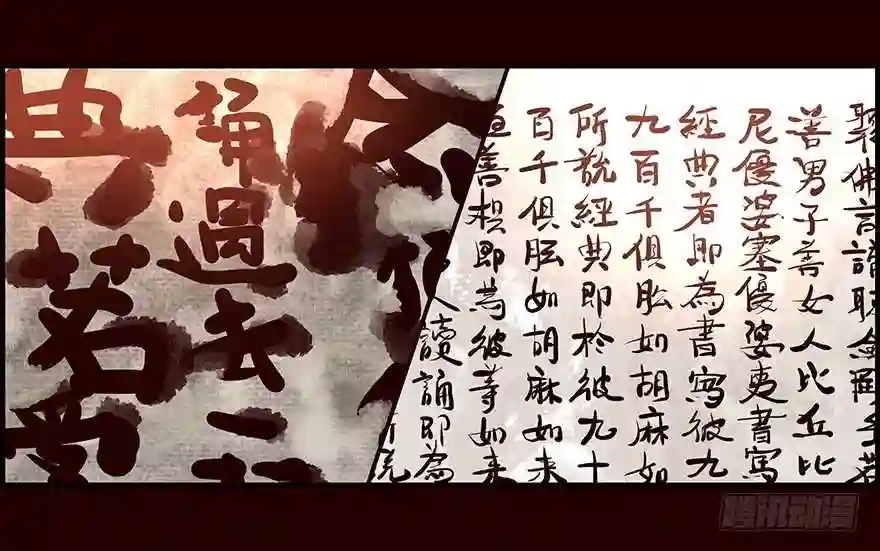 佛言諸
善男子善女人比丘比
尼優婆塞優婆夷書寫
經典者即為書寫彼九
九百千俱胝如胡麻如
所說經典即於彼九十
百千俱胝如胡麻如來
善想即為彼等如來
人讀誦即為
誦過去
典若
腾讯动漫